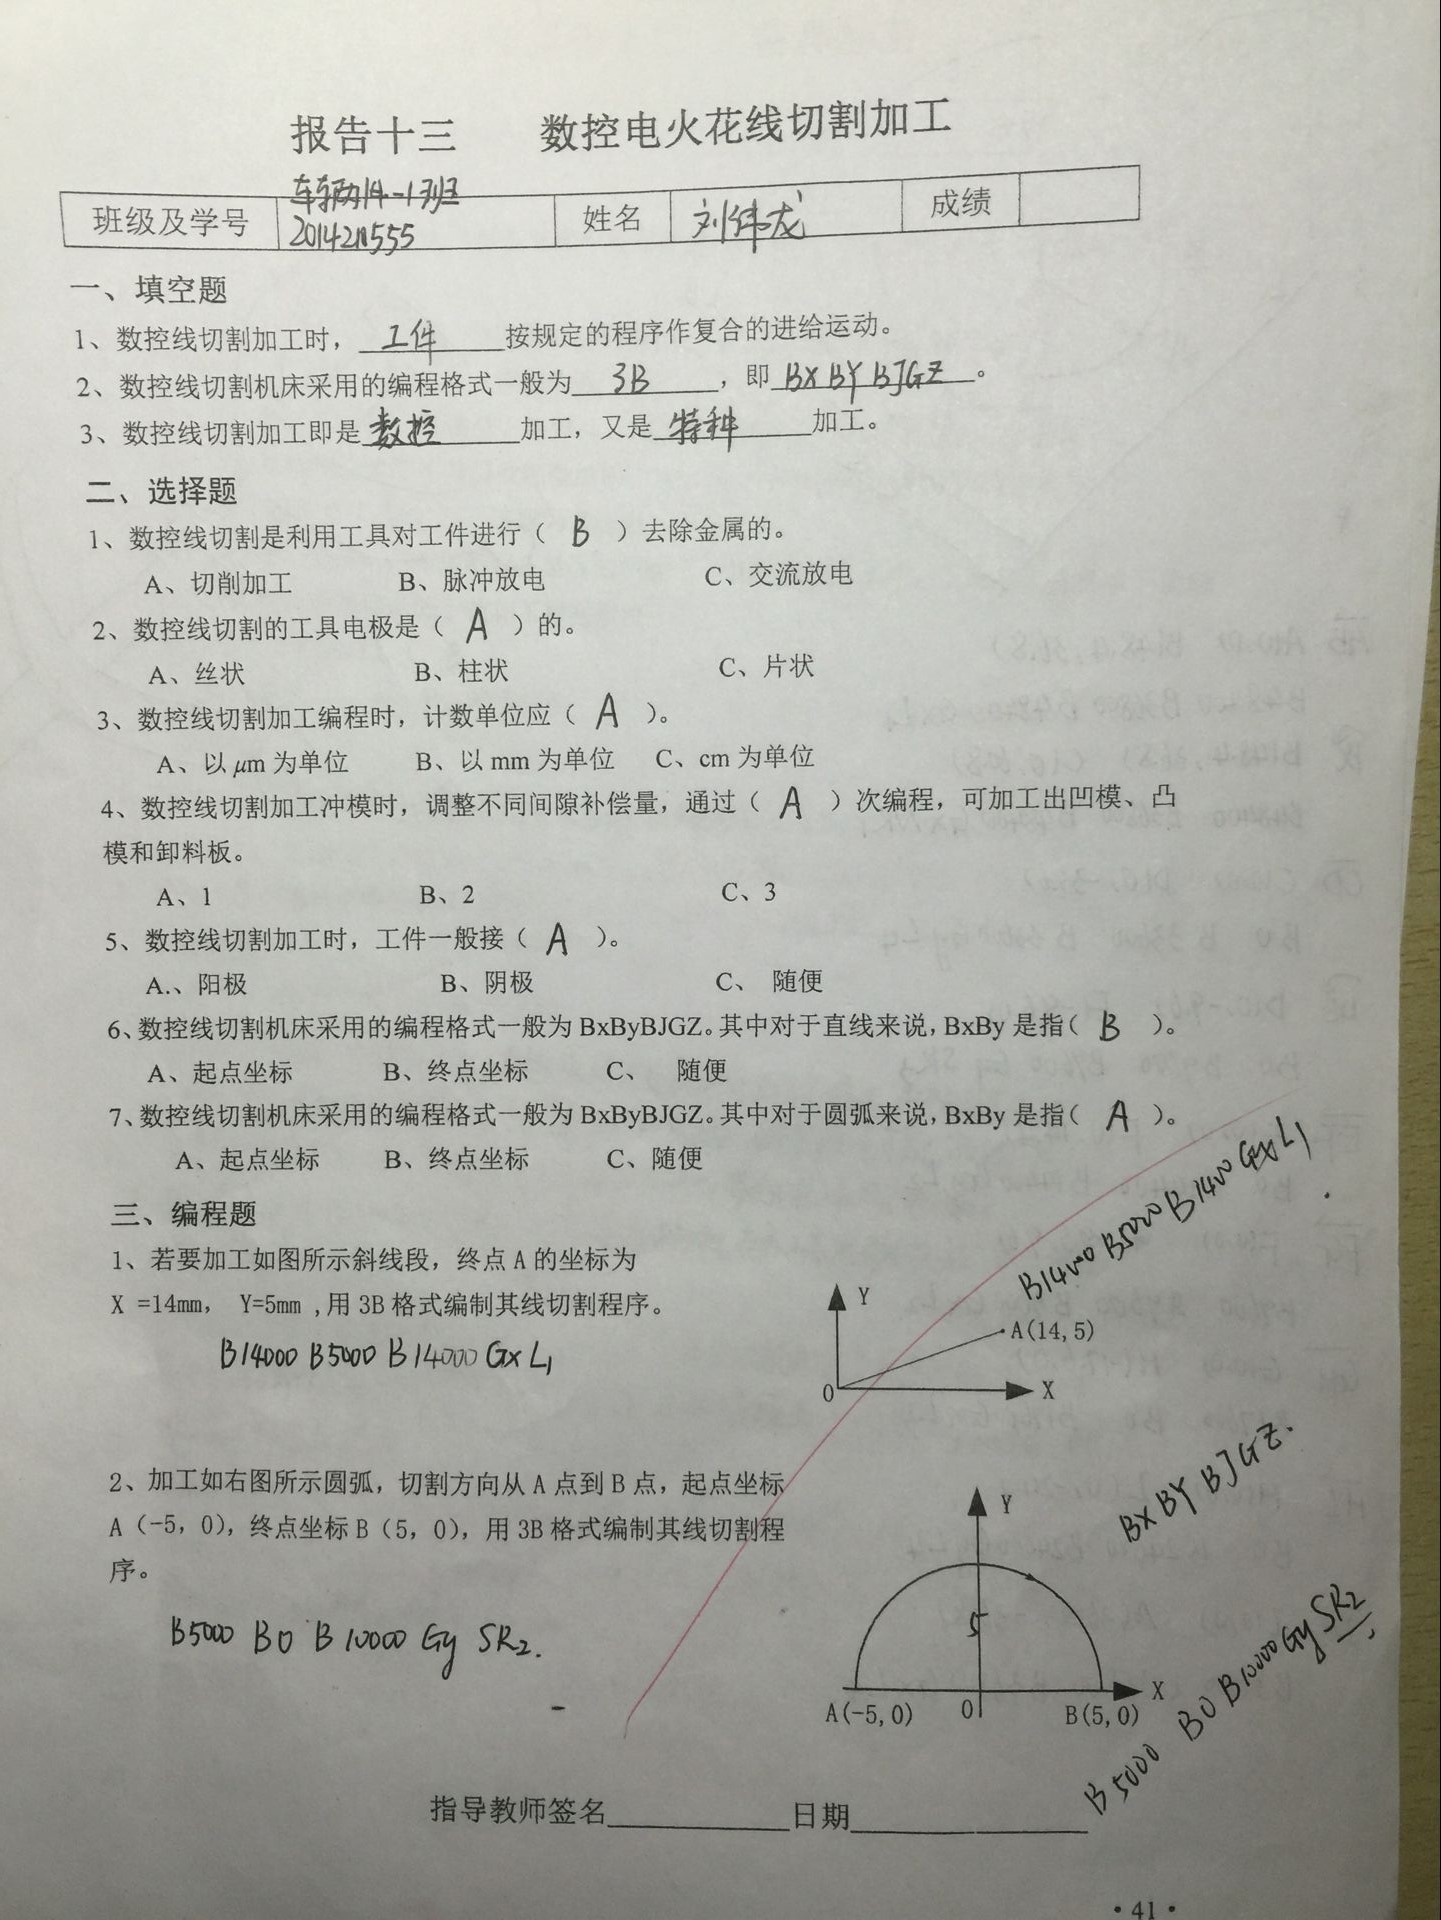 报告十三 数控电火花线切割加工
车辆14-1班
班级及学号 2014211555 姓名 刘伟龙 成绩
一、填空题
1、数控线切割加工时，工件按规定的程序作复合的进给运动。
2、数控线切割机床采用的编程格式一般为3B，即BXBYBJGZ。
3、数控线切割加工即是数控加工，又是特种加工。
二、选择题
1、数控线切割是利用工具对工件进行（ B ）去除金属的。
A、切削加工 B、脉冲放电 C、交流放电
2、数控线切割的工具电极是（ A ）的。
A、丝状 B、柱状 C、片状
3、数控线切割加工编程时，计数单位应（ A ）。
A、以 μm 为单位 B、以 mm 为单位 C、cm 为单位
4、数控线切割加工冲模时，调整不同间隙补偿量，通过（ A ）次编程，可加工出凹模、凸
模和卸料板。
A、1 B、2 C、3
5、数控线切割加工时，工件一般接（ A ）。
A.、阳极 B、阴极 C、 随便
6、数控线切割机床采用的编程格式一般为 BxByBJGZ。其中对于直线来说，BxBy 是指（ B ）。
A、起点坐标 B、终点坐标 C、 随便
7、数控线切割机床采用的编程格式一般为 BxByBJGZ。其中对于圆弧来说，BxBy 是指（ A ）。
A、起点坐标 B、终点坐标 C、随便
三、编程题
1、若要加工如图所示斜线段，终点 A 的坐标为
X =14mm， Y=5mm ,用 3B 格式编制其线切割程序。
B14000 B5000 B14000 GxL1
B14000 B5000 B1400 GxL1
Y
A(14,5)
0 X
2、加工如右图所示圆弧，切割方向从 A 点到 B 点，起点坐标
A（-5，0），终点坐标 B（5，0），用 3B 格式编制其线切割程
序。
B5000 B0 B10000 Gy SR2.
BXBY BJGZ.
Y
5
X
A(-5,0) 0 B(5,0)
B5000 B0 B10000 Gy SR2
指导教师签名 日期
·41·